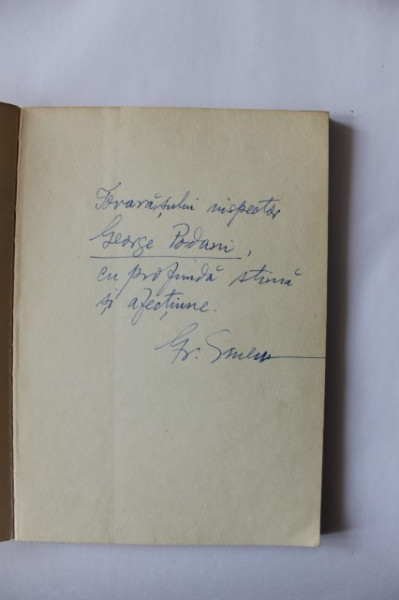 Tovarășului inspector
George Podani,
cu profundă stimă
și afecțiune.
Gr.